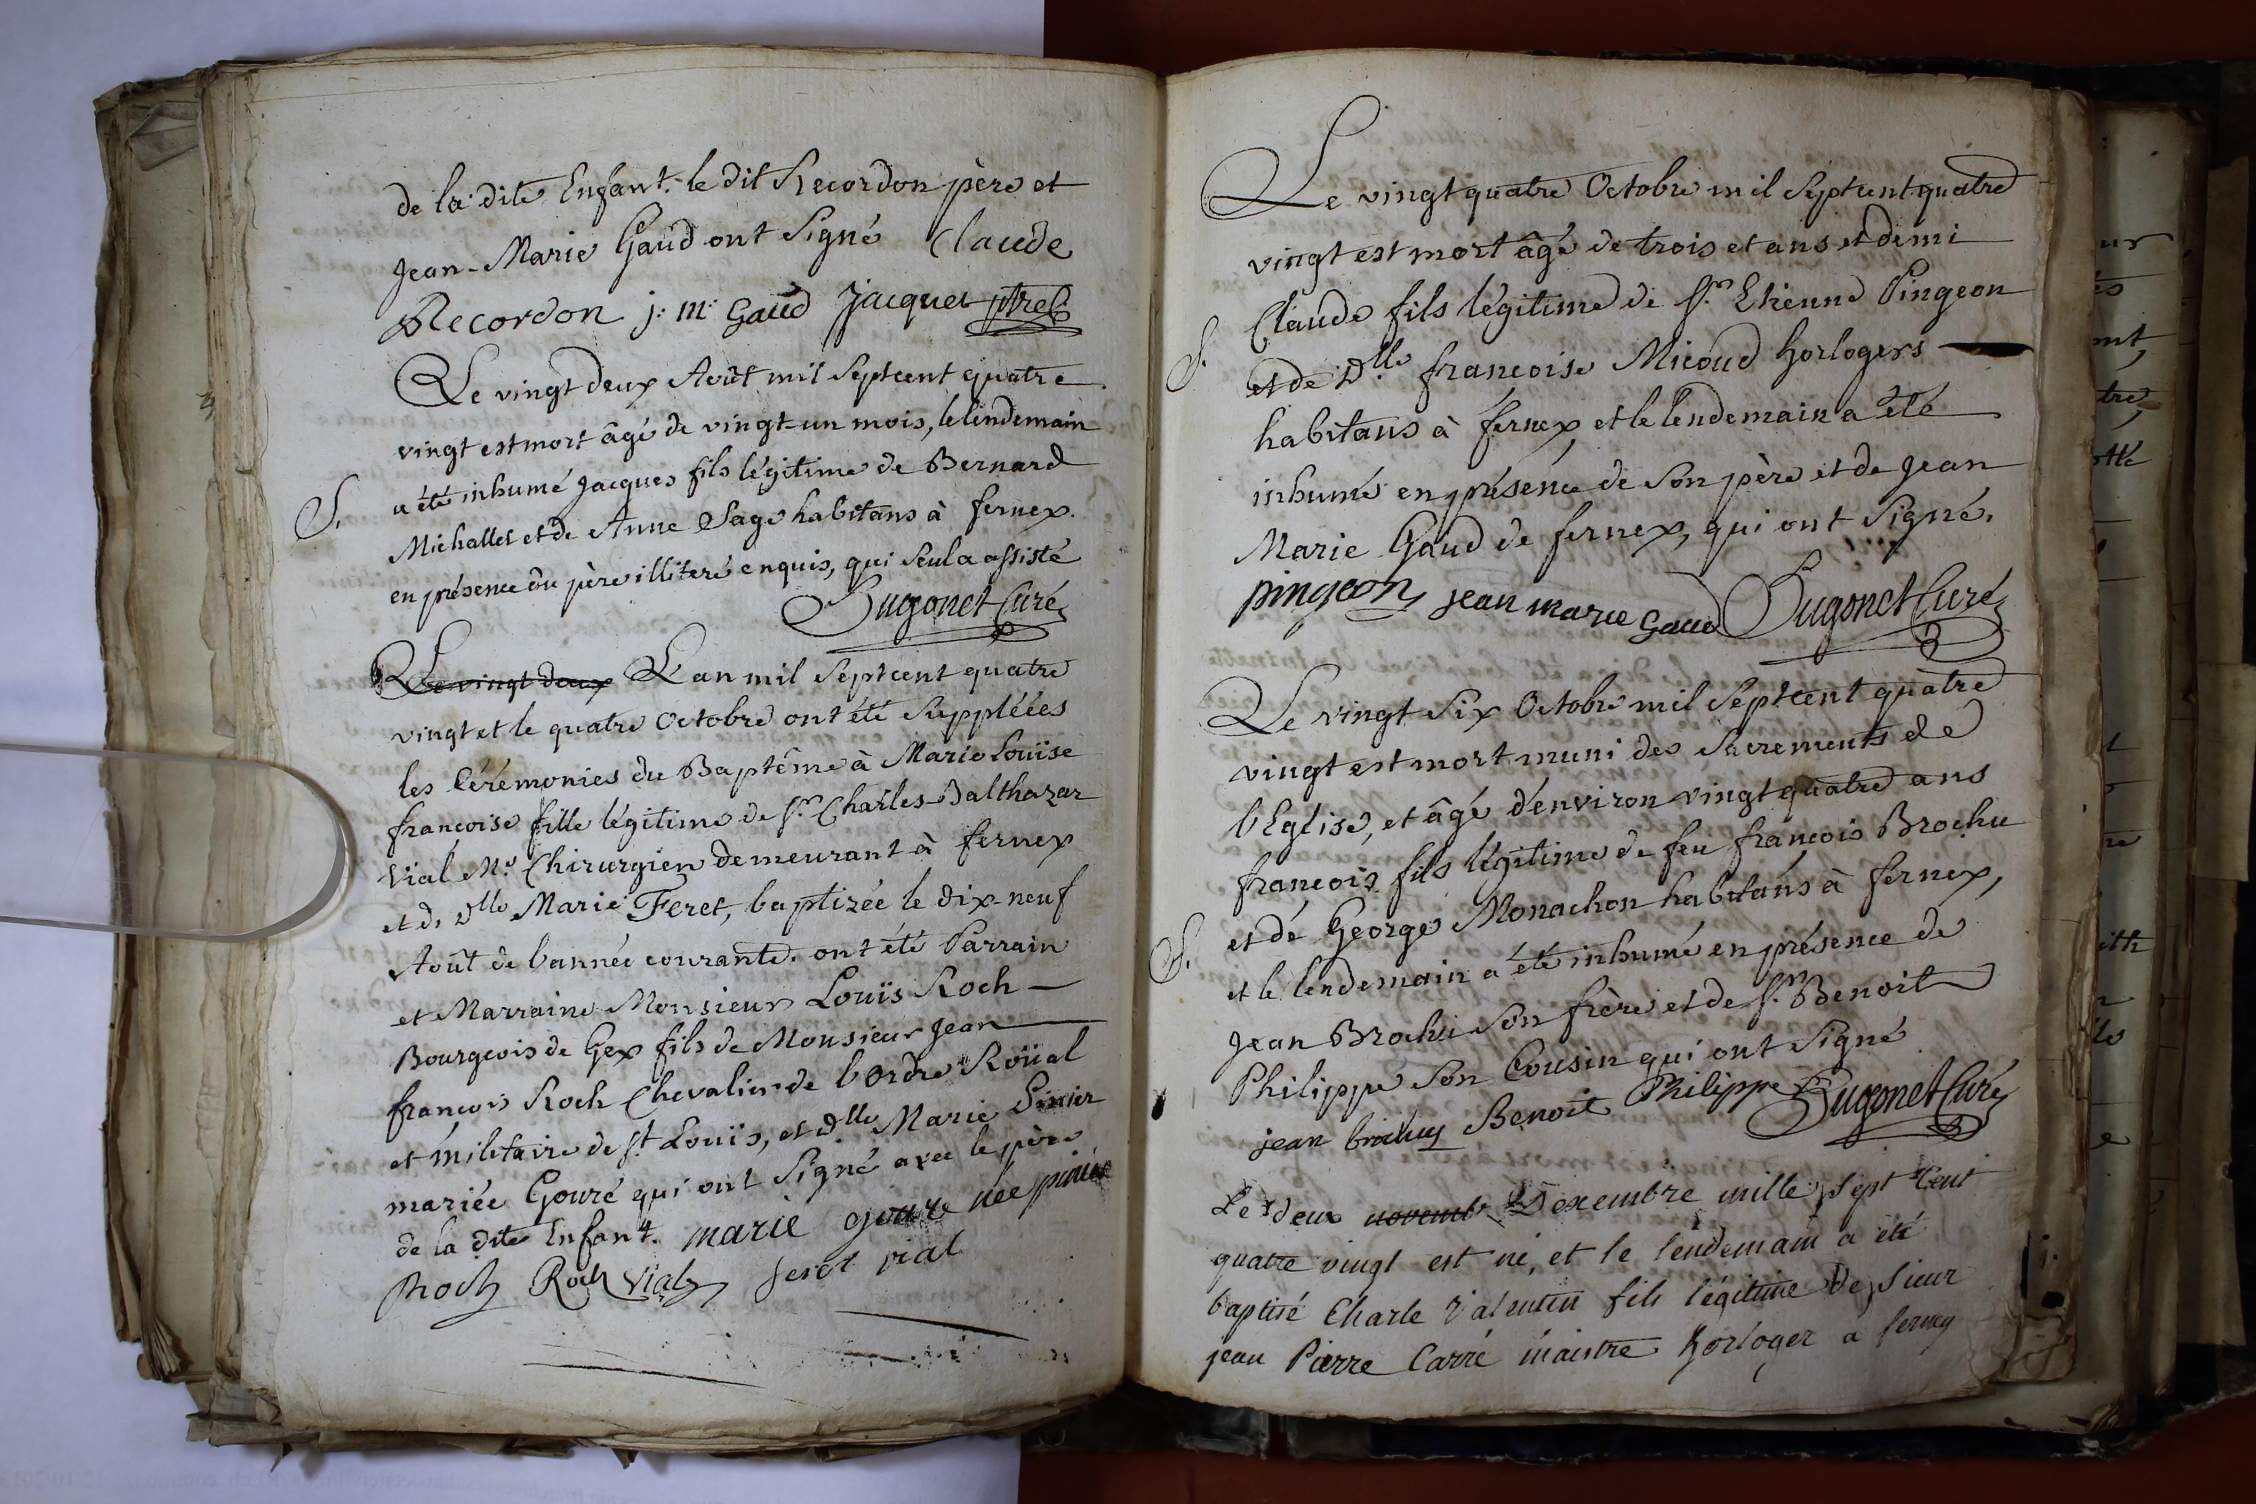 de la dite Enfant. le dit Recordon père et
Jean-Marie Gaud ont Signé Claude
Recordon j: m: Gaud Jacquet
Le vingt deux Août mil Septcent quatre
vingt est mort âgé de vingt-un mois, le lendemain
a été inhumé Jacques fils légitime de Bernard
S.
Michallet et de Anne Sage habitans à fernex.
en présence du père illiteré enquis, qui Seul a assisté
Hugonet Curé
Le vingt deux L'an mil Septcent quatre
vingt et le quatre Octobre ont été Suppléées
les Cérémonies du Baptême à Marie Louïse
françoise fille légitime de Sr. Charles Balthazar
Vial Me. Chirurgien demeurant à fernex
et de Dlle Marie Feret, baptizée le dix-neuf
Août de l'année courante. ont été Parrain
et Marraine Monsieur Louïs Roch
Bourgeois de Gex fils de Monsieur Jean
françois Roch Chevalier de l'ordre Roïial
et militaire de St. Louïs, et Dlle Marie Pinier
mariée Gouré qui ont Signé avec le père
de la dite Enfant. marie goure née pinier
Roch Roch Vial feret vial
Le vingt quatre Octobre mil Septcent quatre
vingt est mort âgé de trois et ans et demi
Claude fils légitime de Sr. Etienne Pingeon
S.
et de Dlle françoise Micoud horlogers
habitans à fernex, et le lendemain a été
inhumé en présence de Son père et de Jean
Marie Gaud de fernex, qui ont Signé.
pingeon jean marie Gaud Hugonet Curé
Le vingt Six Octobre mil Septcent quatre
vingt est mort muni des Sacrements de
l'Eglise, et âgé d'environ vingt quatre ans
françois fils légitime de feu françois Brochu
et de George Monachon habitans à fernex,
S.
et le lendemain a été inhumé en présence de
Jean Brochu Son frère et de Sr. Benoit
Philippe Son Cousin qui ont Signé
jean brochus Benoit Philippe Hugonet Curé
Le deux novemb. Dexembre mille Sept Cent
quatre vingt est né, et le lendemain a été
baptisé Charle Valentin fils légitime de Sieur
jean Pierre Carré maistre horloger à ferney